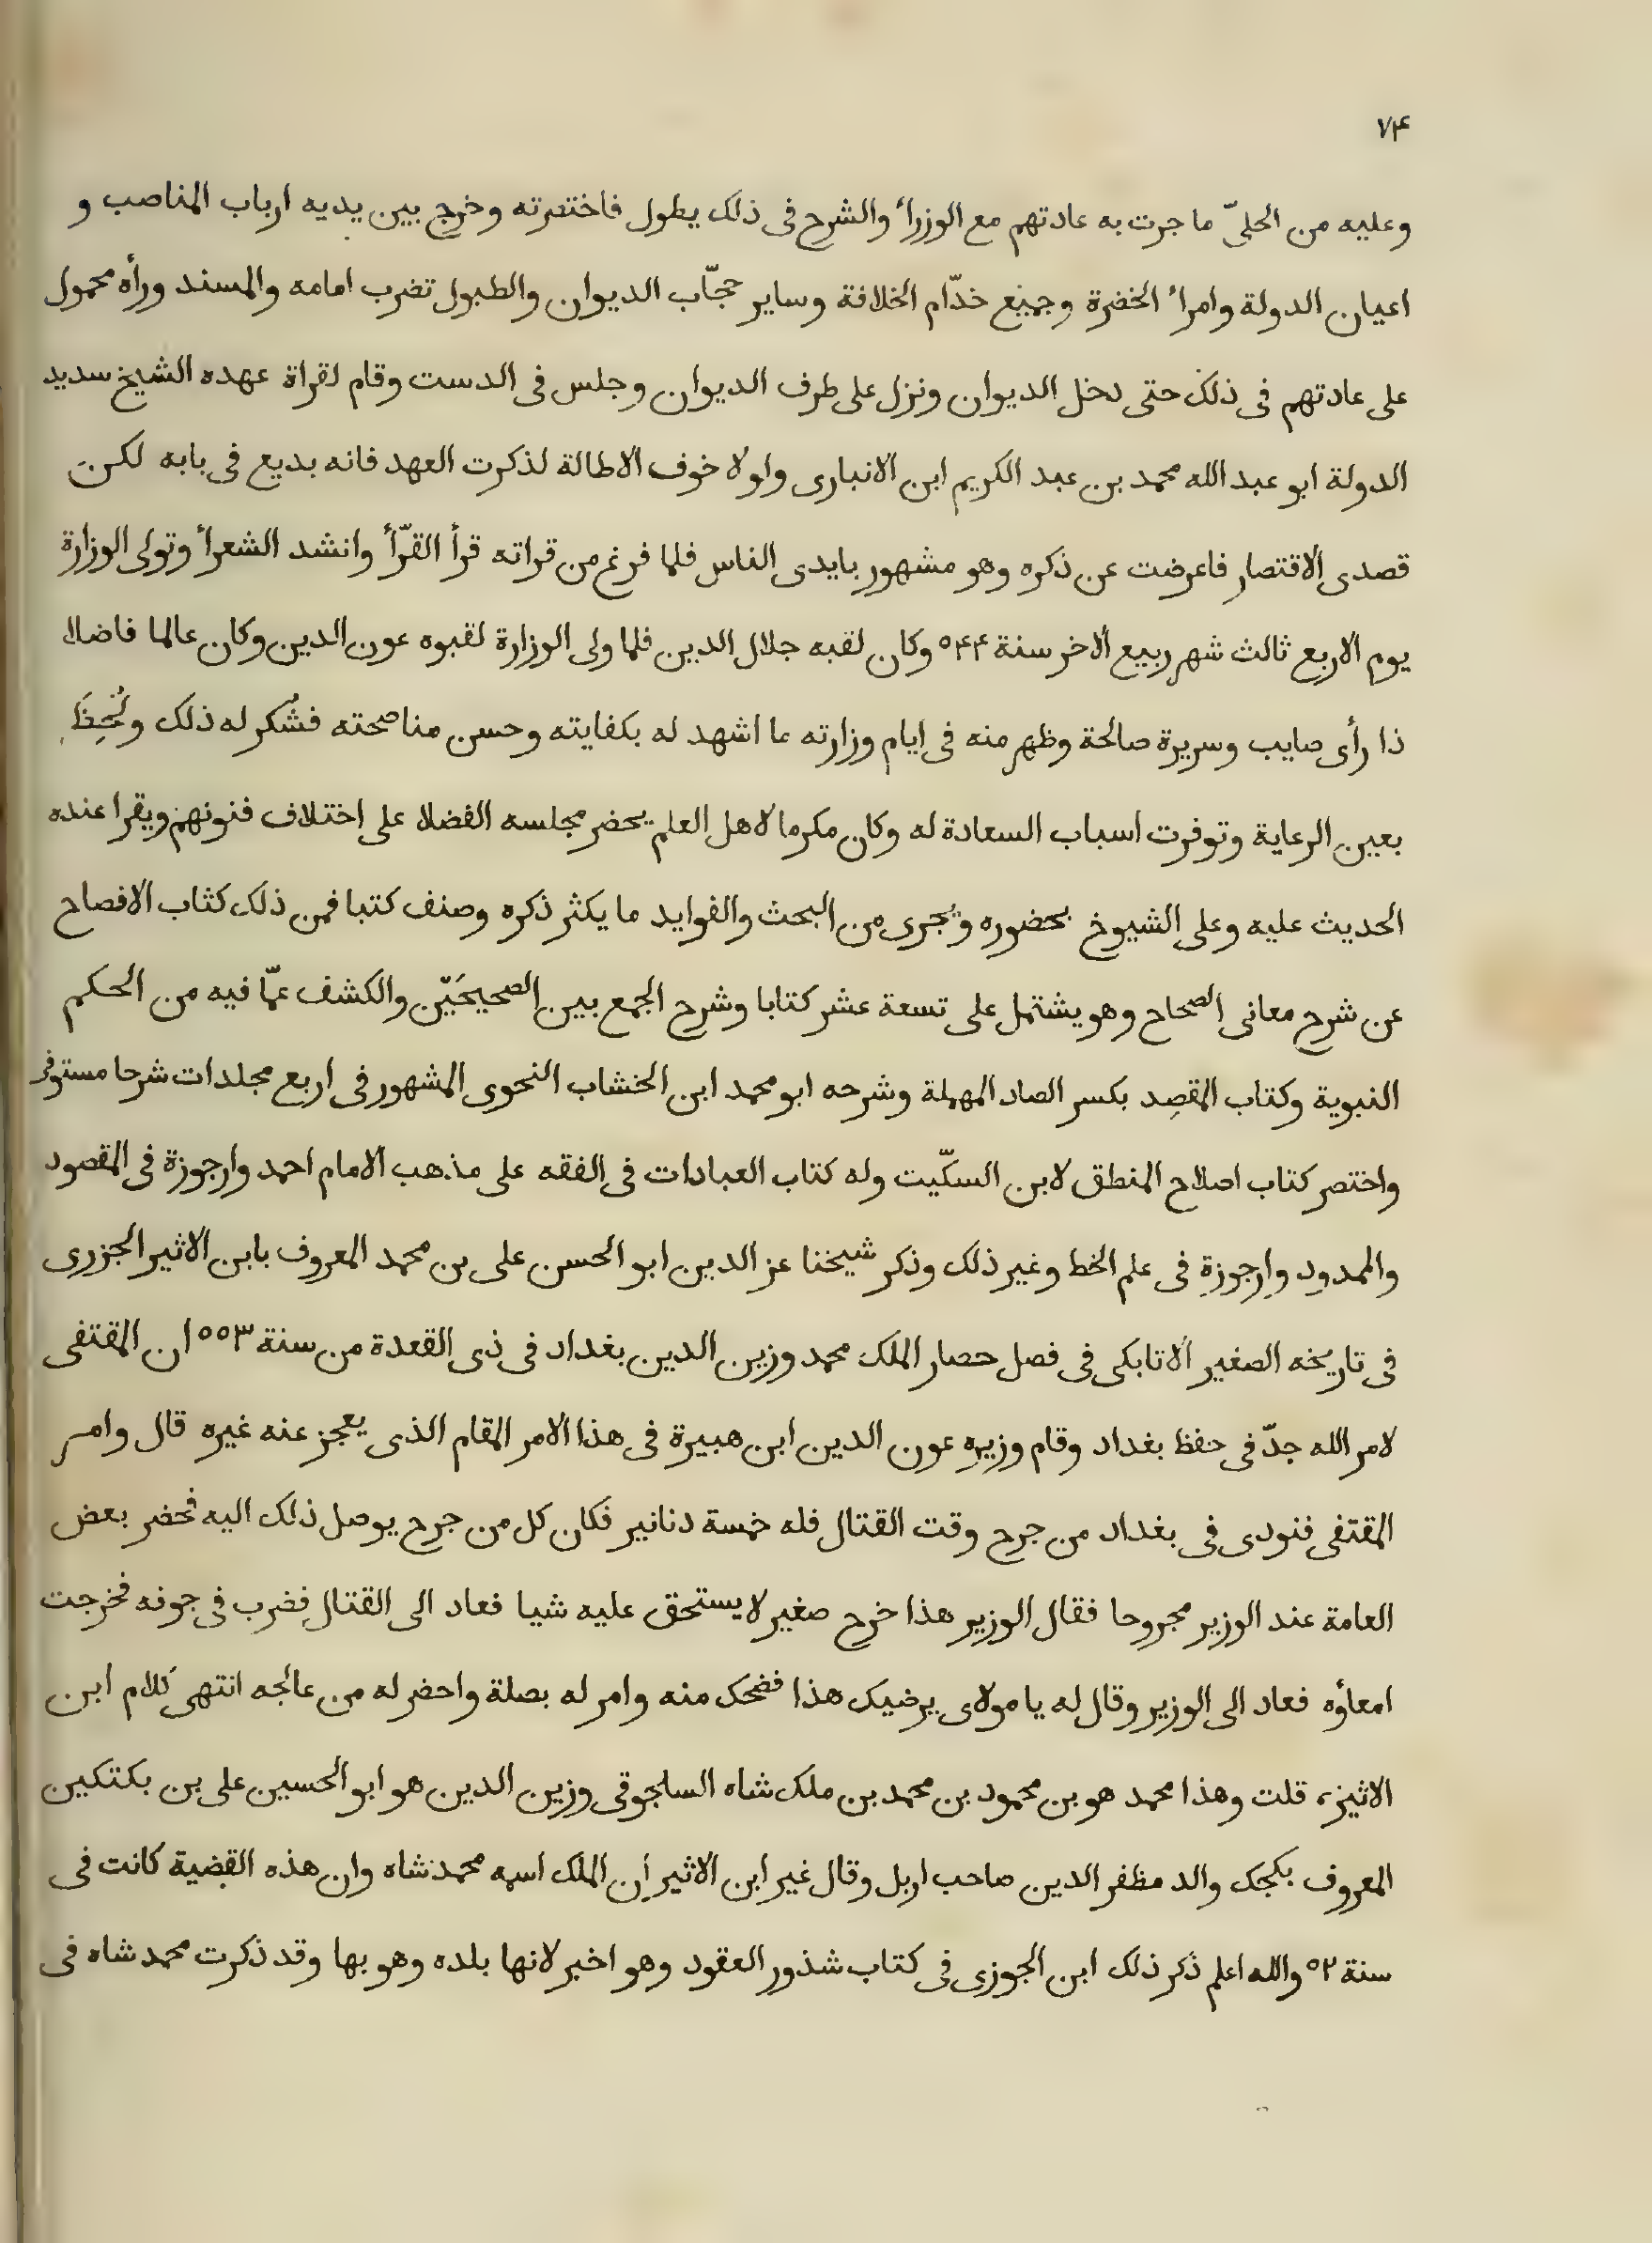 ٧۴
وعليه من الحلىّ ما جرت به عادتهم مع الوزرأ والشرح فى ذلك يطول فاختصرته وخرج بين يديه ارباب المناصب و
اعيان الدولة وامرأ الحضرة وجميع خدّام الخلافة وساير حجّاب الديوان والطبول تضرب امامه والمسند ورأه محمول
على عادتهم فى ذلك حتى دخل الديوان ونزل على طرف الديوان وجلس فى الدست وقام لقراة عهده الشيخ سديد
الدولة ابو عبد الله محمد بن عبد الكريم ابن الانبارى ولولا خوف الاطالة لذكرت العهد فانه بديع فى بابه لكن
قصدى الاقتصار فاعرضت عن ذكره وهو مشهور بايدى الناس فلما فرغ من قراته قرأ القرّأ وانشد الشعرأ وتولى الوزارة
يوم الاربع ثالث شهر ربيع الاخر سنة ٥۴۴ وكان لقبه جلال الدين فلما ولى الوزارة لقبوه عون الدين وكان عالما فاضلا
ذا رأى صايب وسريرة صالحة وظهر منه فى ايام وزارته ما اشهد له بكفايته وحسن مناصحته فشُكر له ذلك ولُحِظَ
بعين الرعاية وتوفرت اسباب السعادة له وكان مكرما لاهل العلم يحضر مجلسه الفضلا على اختلاف فنونهم ويقرا عنده
الحديث عليه وعلى الشيوخ بحضوره ويجرى من البحث والفوايد ما يكثر ذكره وصنف كتبا فمن ذلك كتاب الافصاح
عن شرح معانى الصحاح وهو يشتمل على تسعة عشر كتابا وشرح الجمع بين الصحيحَيّن والكشف عمّا فيه من الحكم
النبوية وكتاب المقصِد بكسر الصاد المهملة وشرحه ابو محمد ابن الخشاب النحوى المشهور فى اربع مجلدات شرحا مستوفى
واختصر كتاب اصلاح المنطق لابن السكّيت وله كتاب العبادات فى الفقه على مذهب الامام احمد وارجوزة فى المقصود
والممدود وارجوزة فى علم الخط وغير ذلك وذكر شيخنا عز الدين ابو الحسن على بن محمد المعروف بابن الاثير الجزرى
فى تاريخه الصغير الاتابكى فى فصل حصار الملك محمد وزين الدين بغداد فى ذى القعدة من سنة ٥٥٣ ان المقتفى
لامر الله جدّ فى حفظ بغداد وقام وزيره عون الدين ابن هبيرة فى هذا الامر المقام الذى يعجز عنه غيره قال وامر
المقتفى فنودى فى بغداد من جرح وقت القتال فله خمسة دنانير فكان كل من جرح يوصل ذلك اليه فحضر بعض
العامة عند الوزير مجروحا فقال الوزير هذا خرح صغير لا يستحق عليه شيا فعاد الى القتال فضرب فى جوفه فخرجت
امعاؤه فعاد الى الوزير وقال له يا مولاى يرضيك هذا فضحك منه وامر له بصلة واحضر له من عالجه انتهى كلام ابن
الاثير، قلت وهذا محمد هو بن محمود بن محمد بن ملك شاه السلجوقى وزين الدين هو ابو الحسين على بن بكتكين
المعروف بكجك والد مظفر الدين صاحب اربل وقال غير ابن الاثير ان الملك اسمه محمد شاه وان هذه القضية كانت فى
سنة ٥٢ والله اعلم ذكر ذلك ابن الجوزى فى كتاب شذور العقود وهو اخبر لانها بلده وهو بها وقد ذكرت محمد شاه فى